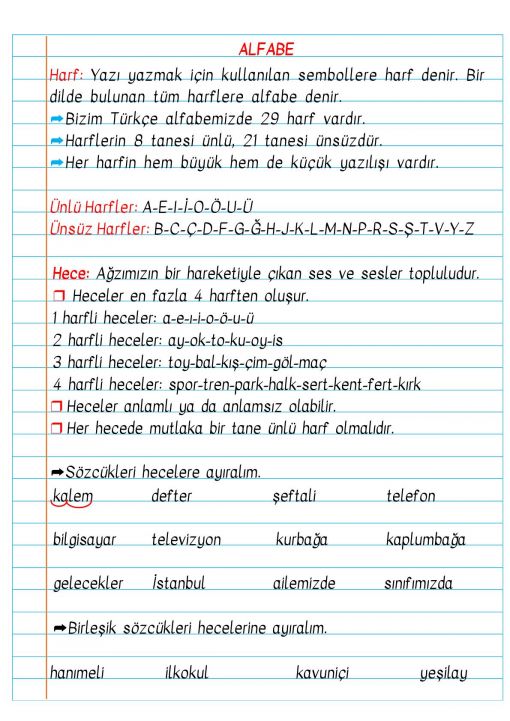 ALFABE
Harf: Yazı yazmak için kullanılan sembollere harf denir. Bir
dilde bulunan tüm harflere alfabe denir.
➡Bizim Türkçe alfabemizde 29 harf vardır.
➡Harflerin 8 tanesi ünlü, 21 tanesi ünsüzdür.
➡Her harfin hem büyük hem de küçük yazılışı vardır.
Ünlü Harfler: A-E-I-İ-O-Ö-U-Ü
Ünsüz Harfler: B-C-Ç-D-F-G-Ğ-H-J-K-L-M-N-P-R-S-Ş-T-V-Y-Z
Hece: Ağzımızın bir hareketiyle çıkan ses ve sesler topluludur.
❒ Heceler en fazla 4 harften oluşur.
1 harfli heceler: a-e-ı-i-o-ö-u-ü
2 harfli heceler: ay-ok-to-ku-oy-is
3 harfli heceler: toy-bal-kış-çim-göl-maç
4 harfli heceler: spor-tren-park-halk-sert-kent-fert-kırk
❒ Heceler anlamlı ya da anlamsız olabilir.
❒ Her hecede mutlaka bir tane ünlü harf olmalıdır.
➡Sözcükleri hecelere ayıralım.
kalem defter şeftali telefon
bilgisayar televizyon kurbağa kaplumbağa
gelecekler İstanbul ailemizde sınıfımızda
➡Birleşik sözcükleri hecelerine ayıralım.
hanımeli ilkokul kavuniçi yeşilay